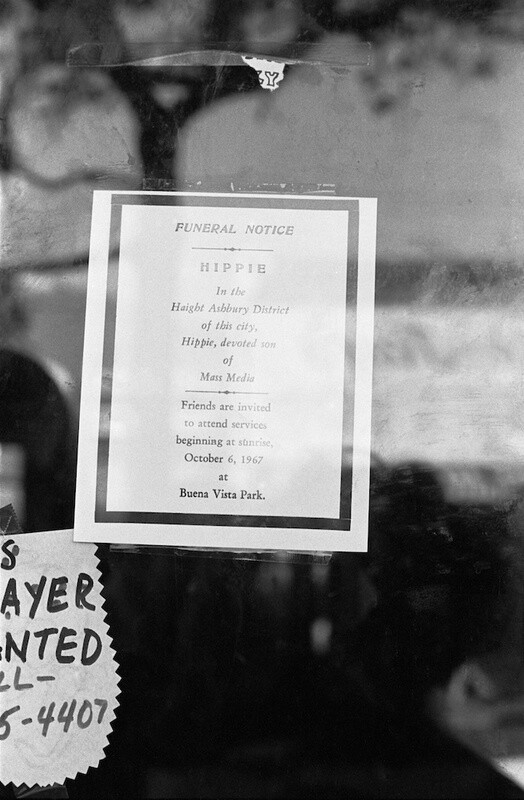 ZY
FUNERAL NOTICE
HIPPIE
In the
Haight Ashbury District
of this city,
Hippie, devoted son
of
Mass Media
Friends are invited
to attend services
beginning at sunrise,
October 6, 1967
at
Buena Vista Park.
S
AYER
ANTED
LL-
5-4407